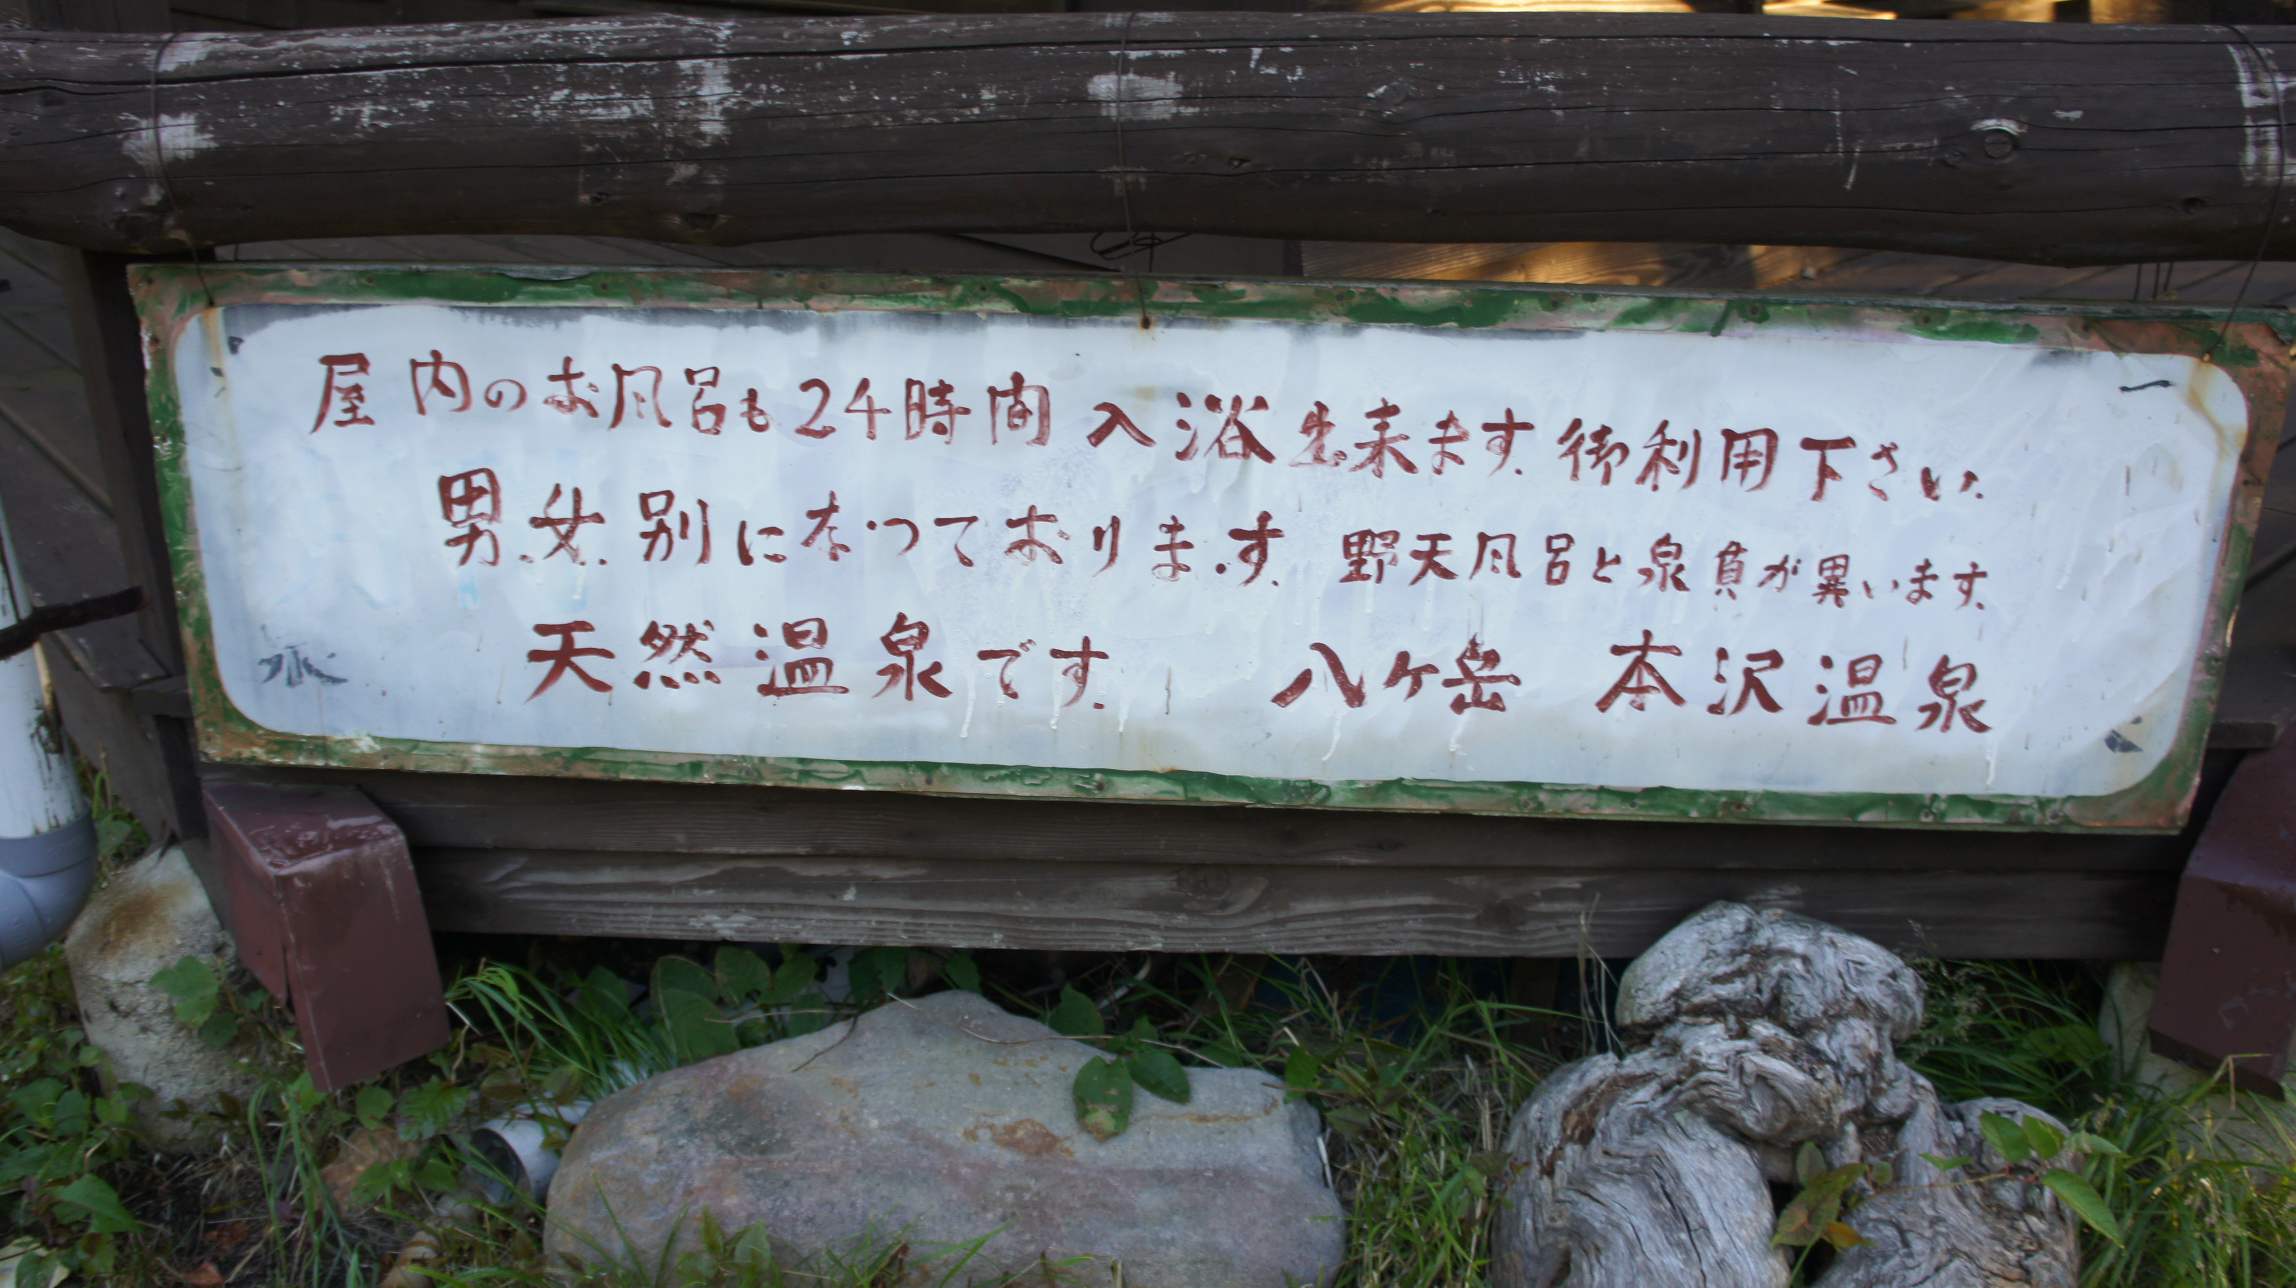 屋内のお風呂も24時間入浴出来ます.御利用下さい.
男.女.別になつております.野天風呂と泉質が異います.
天然温泉です. 八ヶ岳 本沢温泉
水